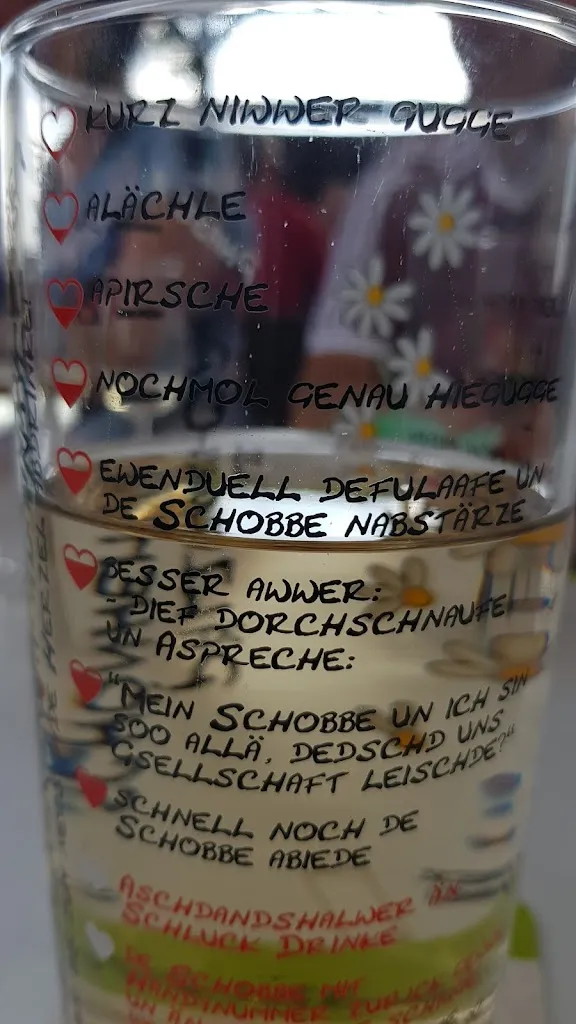 KURZ NIWWER GUGGE
ALÄCHLE
APIRSCHE
NOCHMOL GENAU HIEGUGGE
EWENDUELL DEFULAAFE UN
DE SCHOBBE NABSTÄRZE
BESSER AWWER:
- DIEF DORCHSCHNAUFE
UN ASPRECHE:
"MEIN SCHOBBE UN ICH SIN
SOO ALLÄ, DEDSCHD UNS
GSELLSCHAFT LEISCHDE?"
SCHNELL NOCH DE
SCHOBBE ABIEDE
ASCHDANDSHALWER ÄN
SCHLUCK DRINKE
DE SCHOBBE MIT
HANDINUMMER ZURICK
UN ÄN